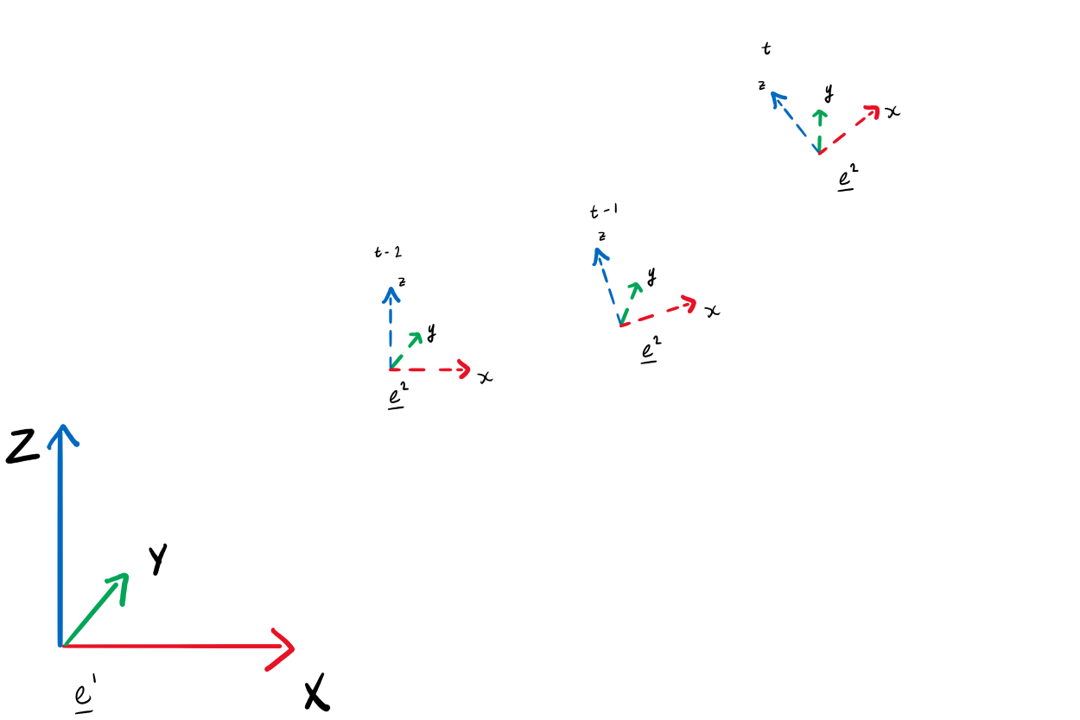 t
z
y
x
e²
t-1
z
y
x
e²
t-2
z
y
x
e²
Z
Y
X
e¹